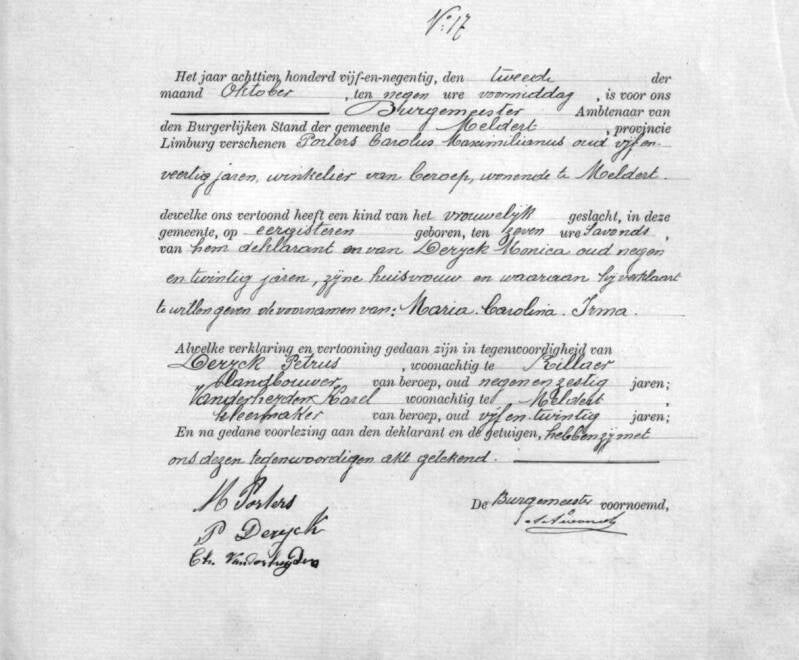 N: 17
Het jaar achttien honderd vijf-en-negentig, den tweede der
maand Oktober, ten negen ure voormiddag, is voor ons
Burgemeester Ambtenaar van
den Burgerlijken Stand der gemeente Meldert, provincie
Limburg verschenen Porters Carolus Maximilianus oud vijf en
veertig jaren, winkelier van beroep, wonende te Meldert.
dewelke ons vertoond heeft een kind van het vrouwelijk geslacht, in deze
gemeente, op eergisteren geboren, ten zeven ure 's avonds,
van hem deklarant en van Deryck Monica oud negen
en twintig jaren, zijne huisvrouw en waaraan hij verklaart
te willen geven de voornamen van: Maria. Carolina. Irma.
Alwelke verklaring en vertooning gedaan zijn in tegenwoordigheid van
Deryck Petrus, woonachtig te Rillaer
landbouwer van beroep, oud negen en zestig jaren;
Vanderheyden Karel woonachtig te Meldert,
kleermaker van beroep, oud vijf en twintig jaren;
En na gedane voorlezing aan den deklarant en de getuigen, hebben zij met
ons dezen tegenwoordigen akt geteekend.
M Porters
De Burgemeester voornoemd,
P Deryck
Ch. Vanderheyden